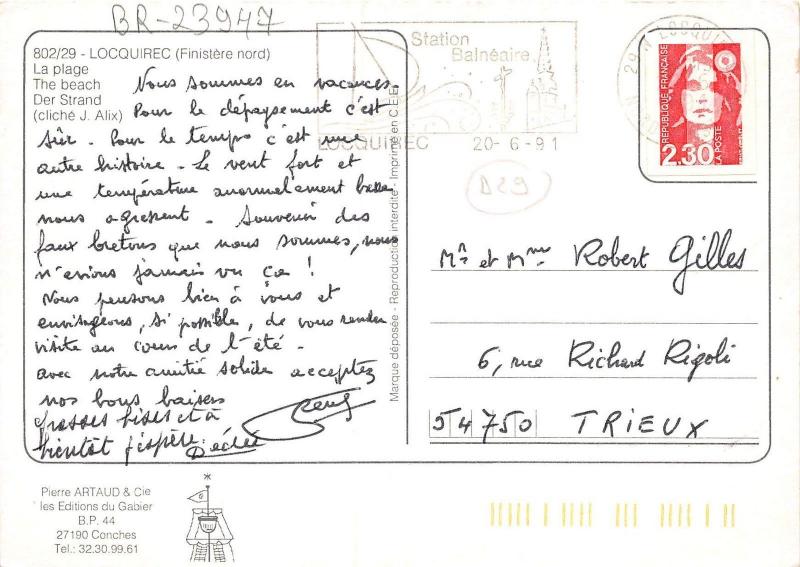 BR-23947
802/29 - LOCQUIREC (Finistère nord)
La plage
The beach
Der Strand
(cliché J. Alix)
Nous sommes en vacances
Pour le dépaysement c'est
sûr. Pour le temps c'est une
autre histoire. Le vent fort et
une température anormalement basse
nous agressent. Souvenir des
faux bretons que nous sommes, nous
n'avions jamais vu ça !
Nous pensons bien à vous et
envisageons, si possible, de vous rendre
visite au cours de l'été.
avec notre amitié solide acceptez
nos bons baisers
grosses bises et à
bientôt j'espère
Marque déposée - Reproduction interdite - Imprimé en C.E.E.
Station
Balnéaire
LOCQUIREC 20-6-91
29 LOCQUIREC
D29
RÉPUBLIQUE FRANÇAISE
2,30
LA POSTE
Mr et Mme Robert Gilles
6, rue Richard Rigoli
54750 TRIEUX
Pierre ARTAUD & Cie
les Editions du Gabier
B.P. 44
27190 Conches
Tel.: 32.30.99.61